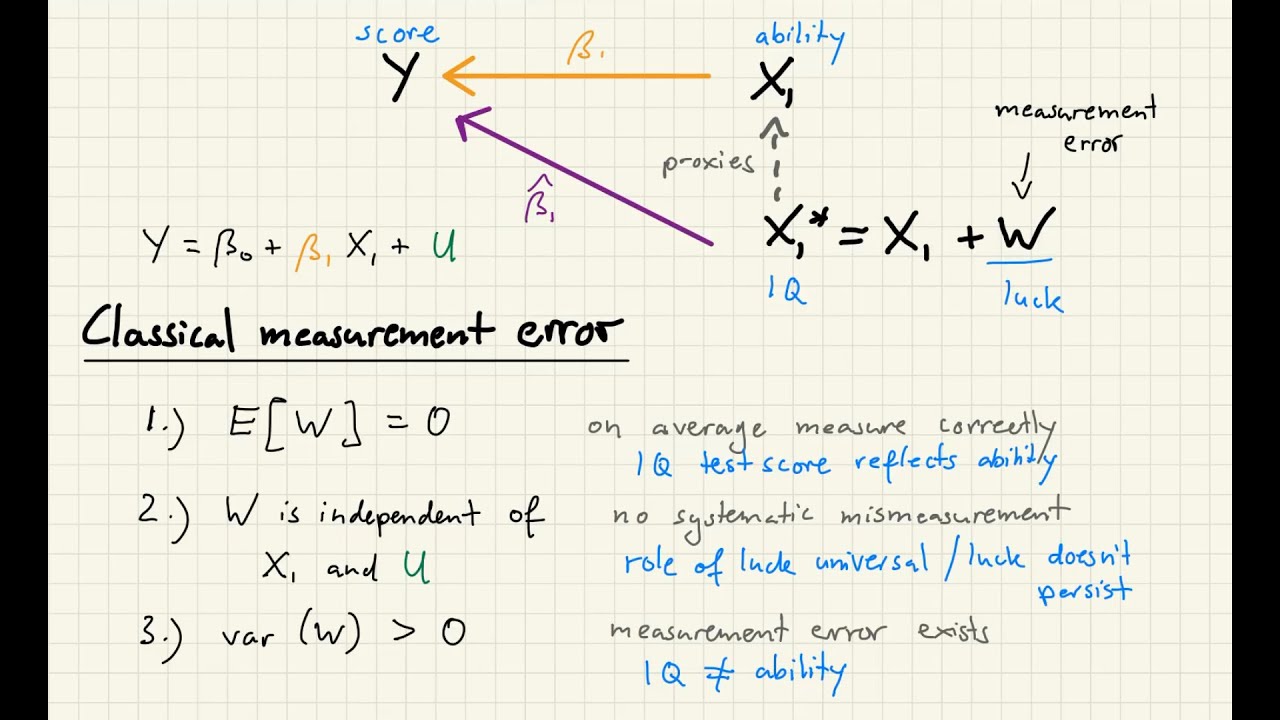 score
ability
Y
β₁
X₁
measurement
error
proxies
β̂₁
X₁* = X₁ + W
IQ
luck
Y = β₀ + β₁ X₁ + U
Classical measurement error
1.) E[W] = 0
on average measure correctly
IQ test score reflects ability
2.) W is independent of
X₁ and U
no systematic mismeasurement
role of luck universal / luck doesn't
persist
3.) var (W) > 0
measurement error exists
IQ ≠ ability